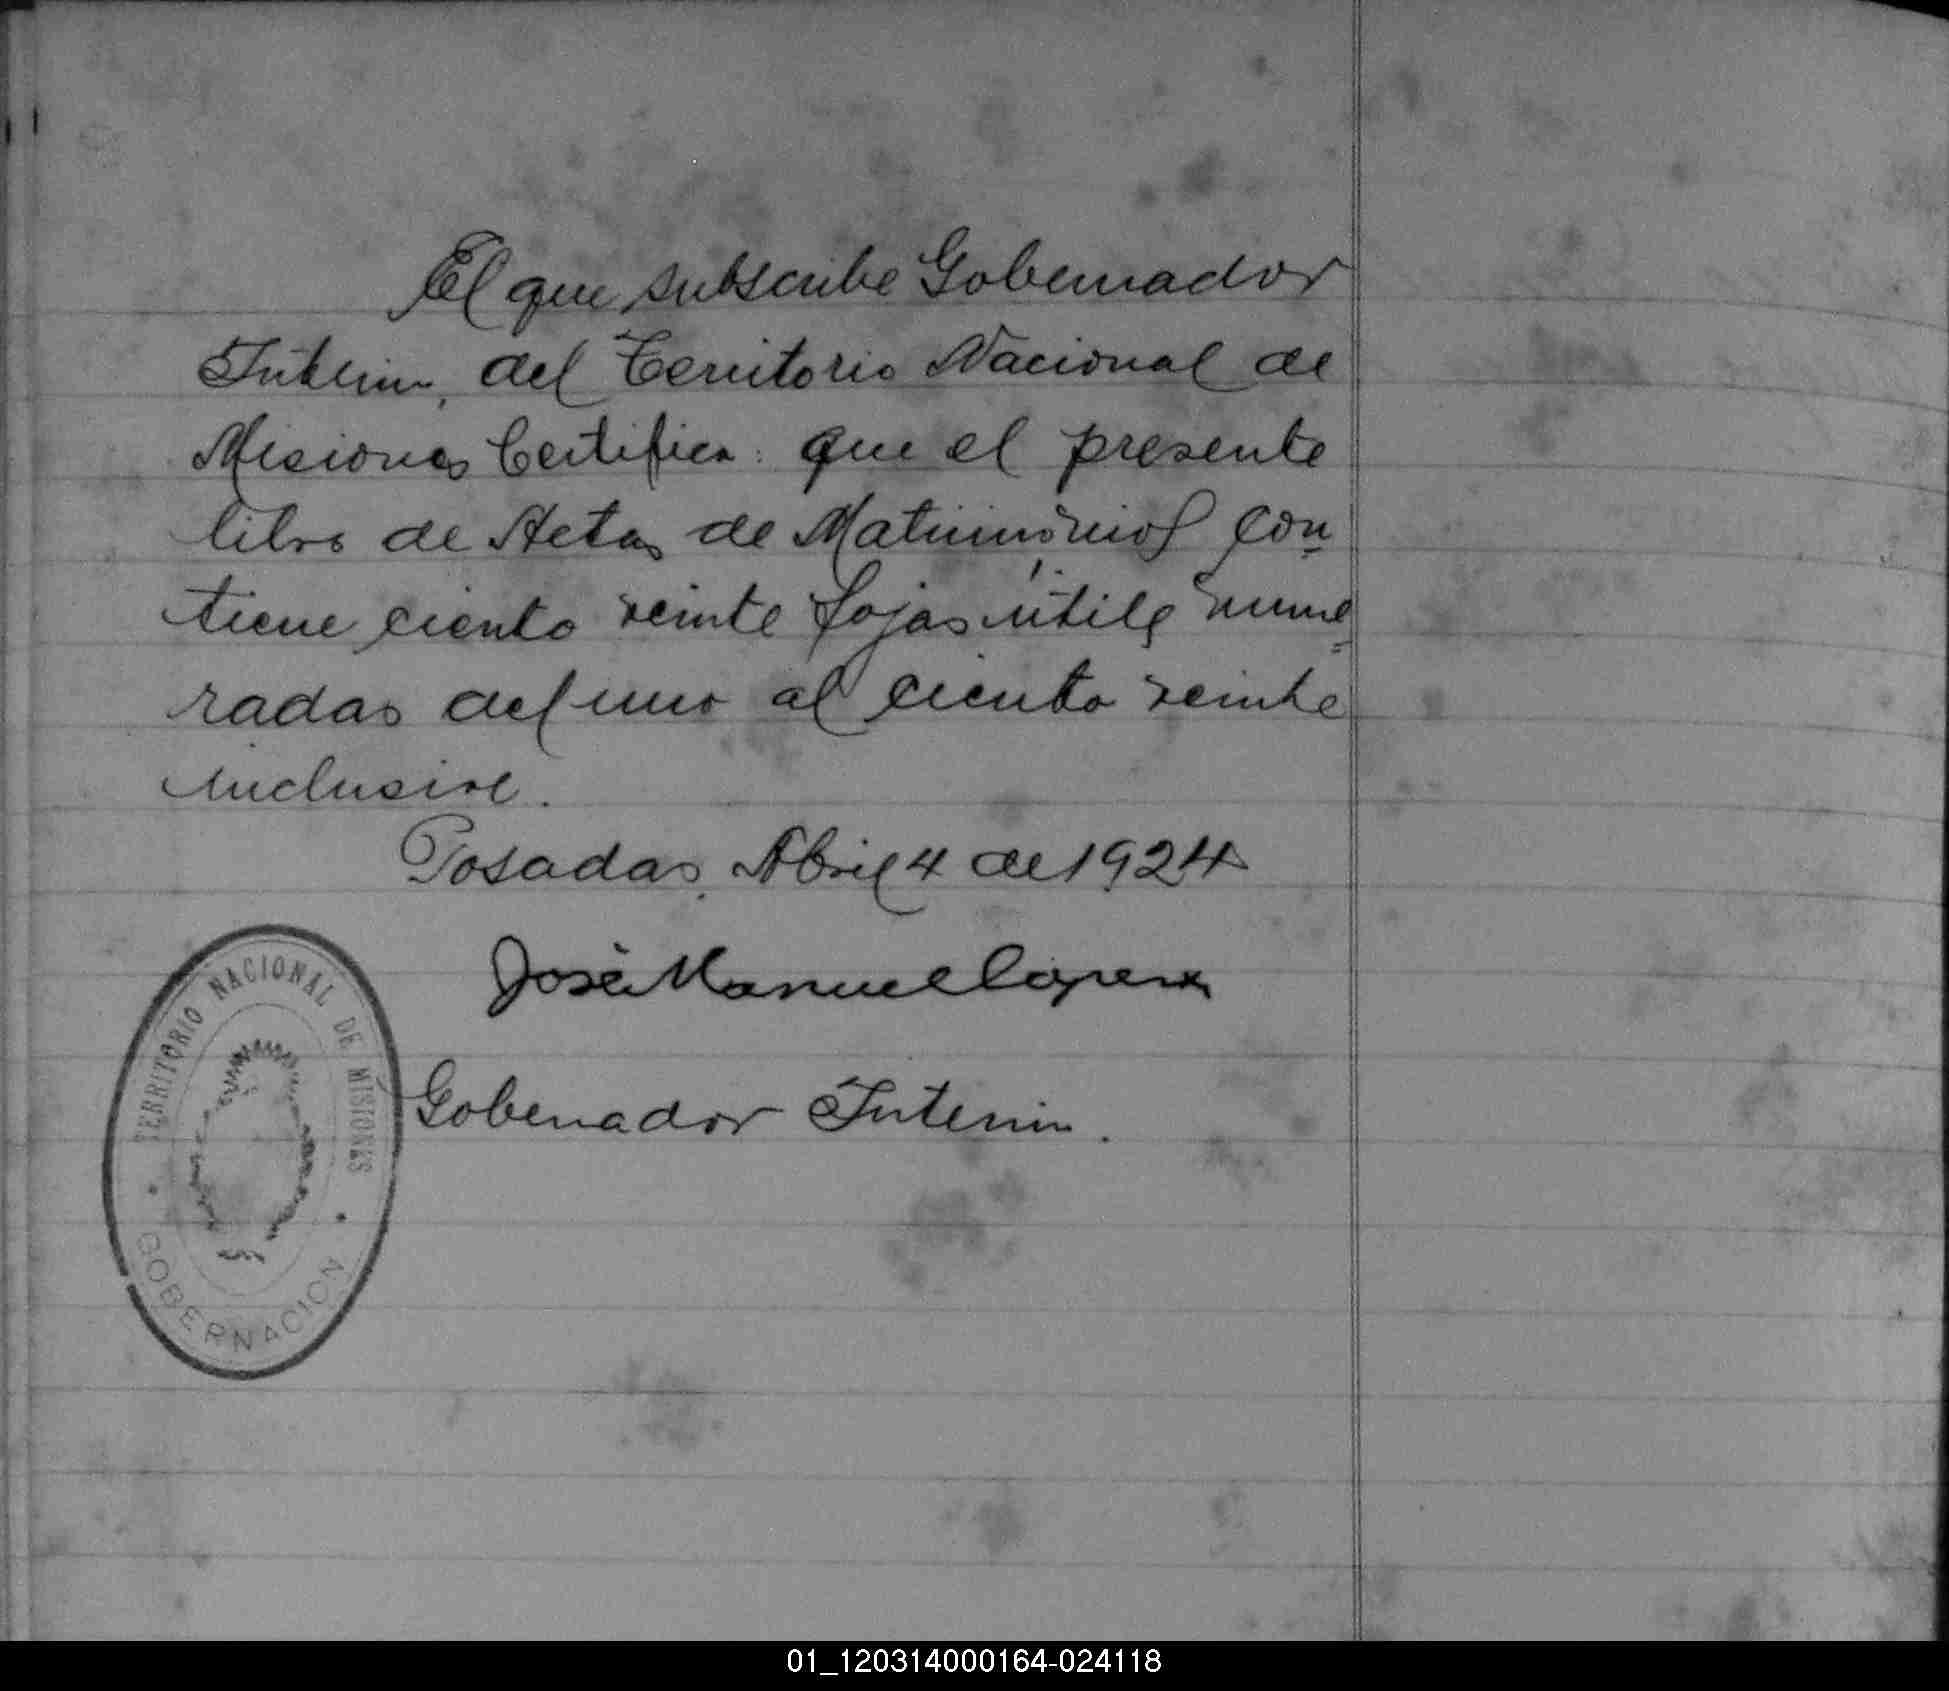 El que subscribe Gobernador
Interin, del Territorio Nacional de
Misiones Certifica: que el presente
libro de Actas de Matrimonios con-
tiene ciento veinte fojas útiles nume=
radas del uno al ciento veinte
inclusive.
Posadas, Abril 4 de 1924
José Manuel
Gobernador Interin.
TERRITORIO NACIONAL DE MISIONES
GOBERNACION
01_120314000164-024118